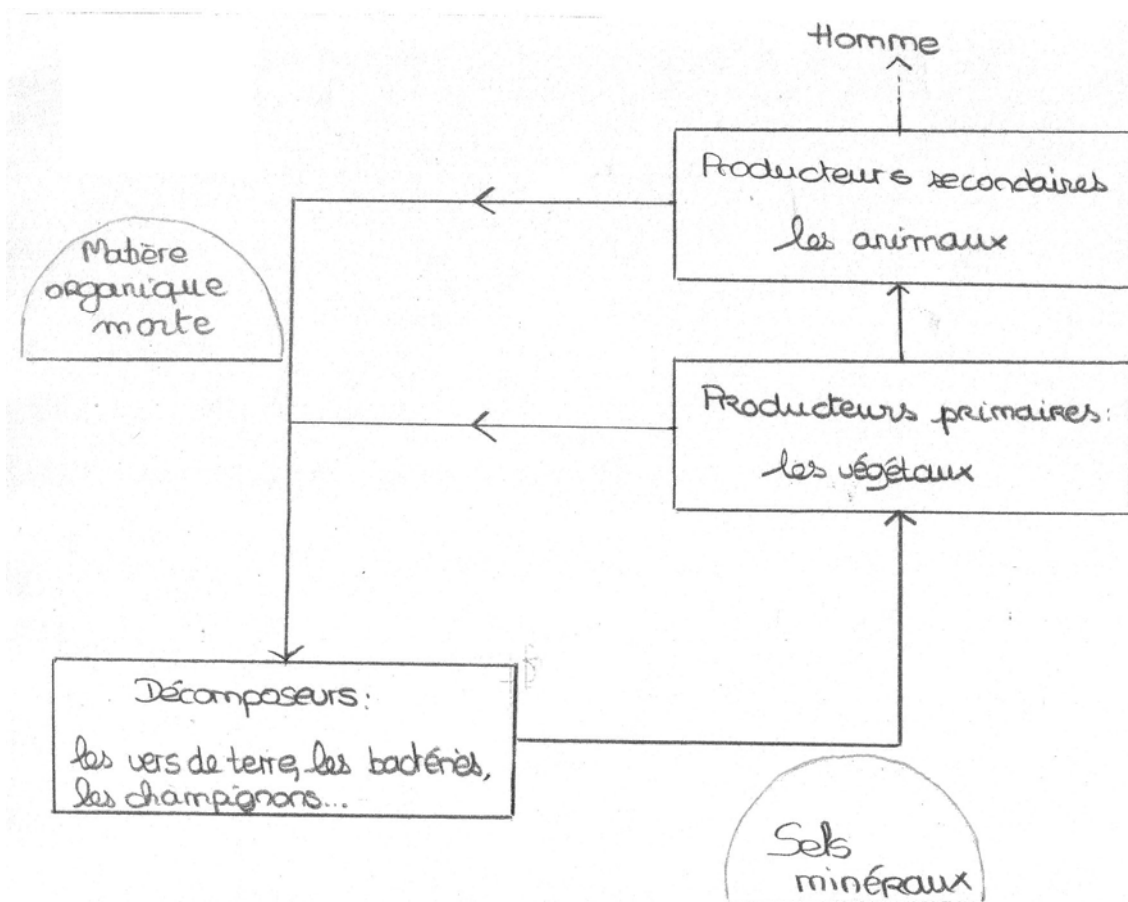 Homme
Producteurs secondaires
les animaux
Matière
organique
morte
Producteurs primaires:
les végétaux
Décomposeurs:
les vers de terre, les bactéries,
les champignons...
Sels
minéraux